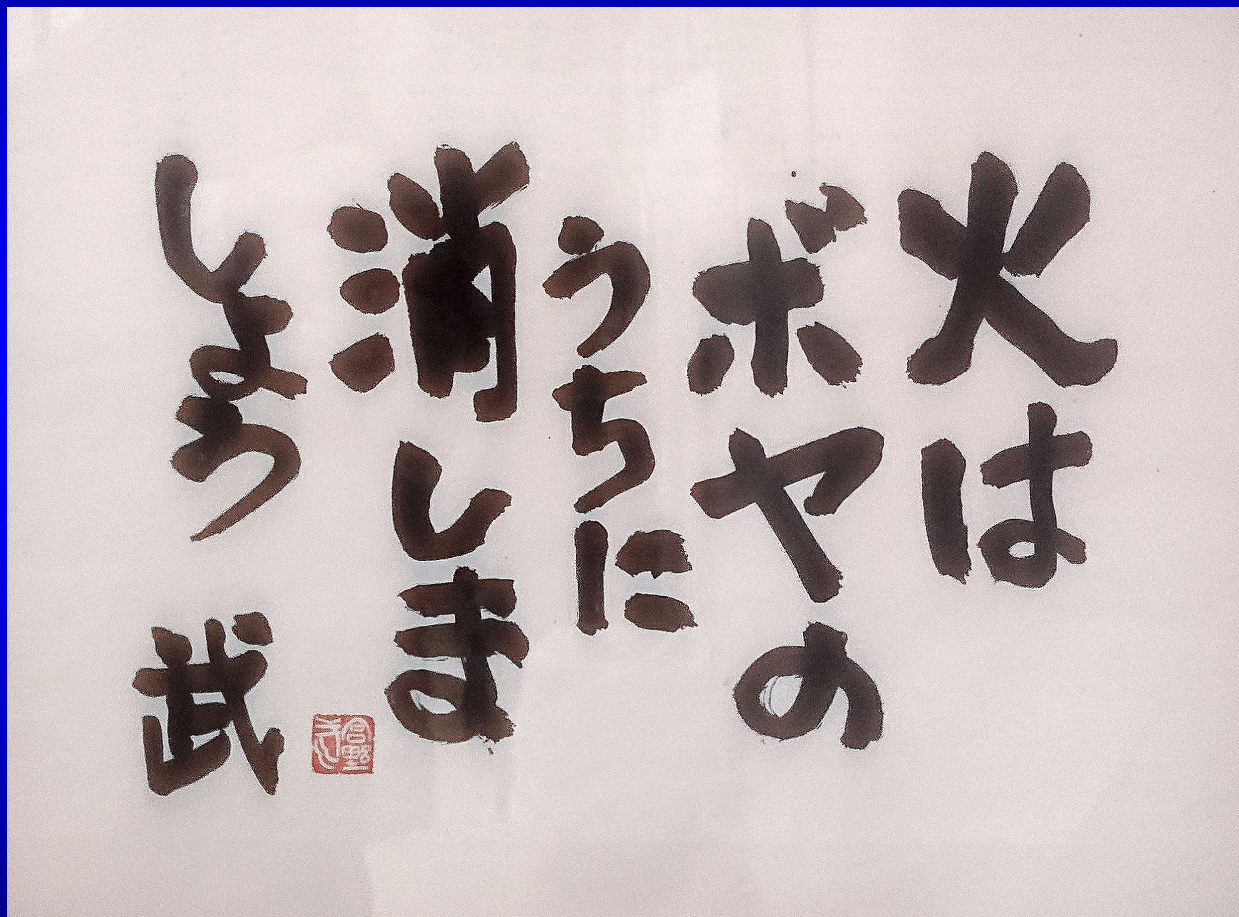 火は
ボヤの
うちに
消しま
しょう 武